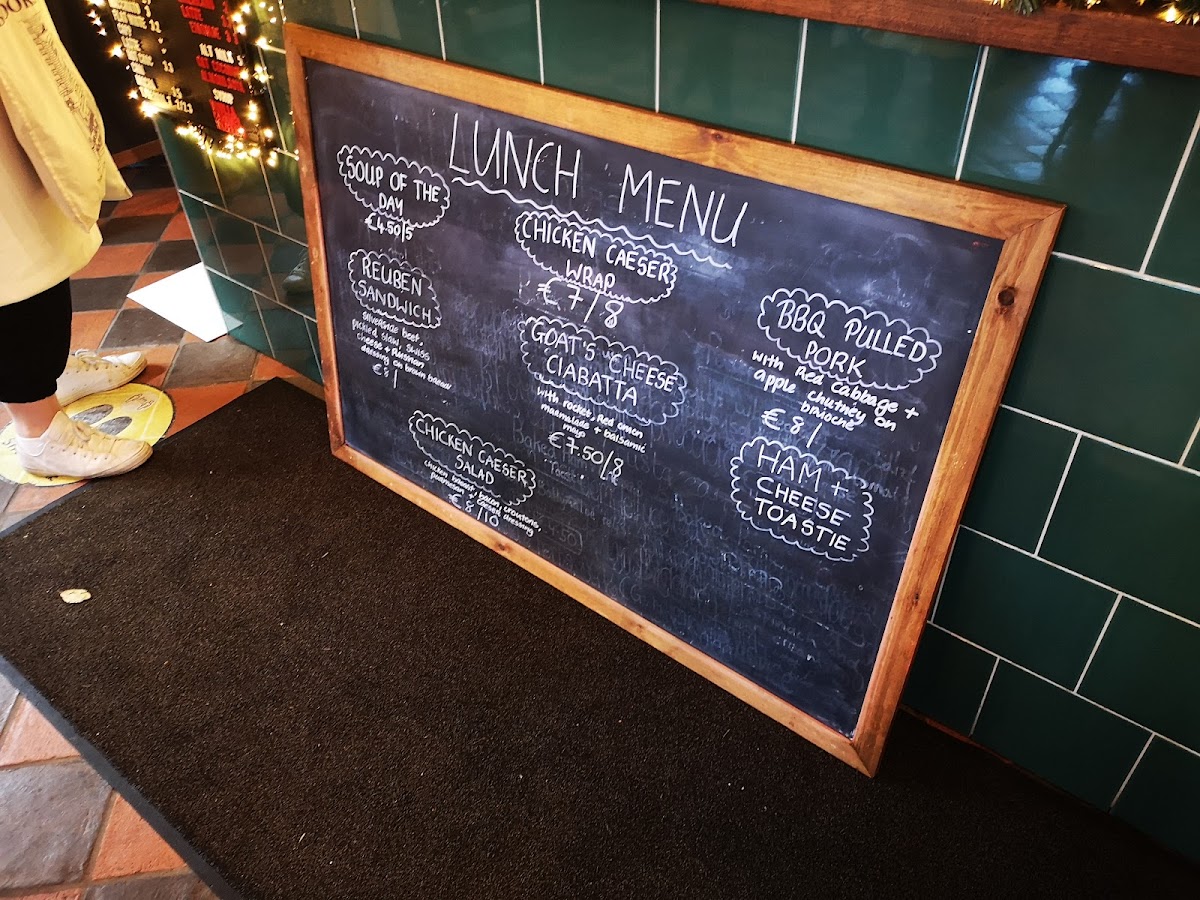 LUNCH MENU
SOUP OF THE
DAY
€4.50/5
REUBEN
SANDWICH
silverside beef,
pickled slaw, swiss
cheese + Russian
dressing on brown bread
€8/
CHICKEN CAESER
SALAD
chicken breast, bacon, croutons,
parmesan + caeser dressing
€8/10
CHICKEN CAESER
WRAP
€7/8
GOAT'S CHEESE
CIABATTA
with rocket, Red onion
marmalade + balsamic
mayo
€7.50/8
BBQ PULLED
PORK
with Red cabbage +
apple chutney on
brioche
€8/
HAM +
CHEESE
TOASTIE